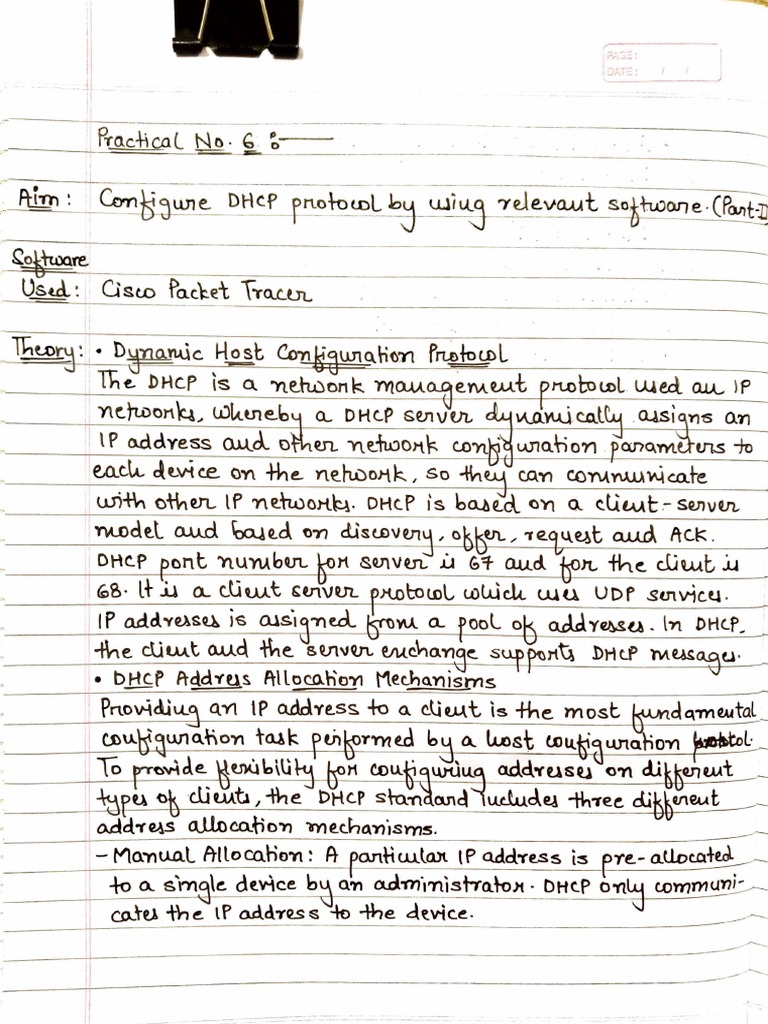 PAGE:
DATE: / /
Practical No. 6 :-
Aim: Configure DHCP protocol by using relevant software. (Part-I
Software
Used: Cisco Packet Tracer
Theory: • Dynamic Host Configuration Protocol
The DHCP is a network management protocol used an IP
networks, whereby a DHCP server dynamically assigns an
IP address and other network configuration parameters to
each device on the network, so they can communicate
with other IP networks. DHCP is based on a client-server
model and based on discovery, offer, request and ACK.
DHCP port number for server is 67 and for the client is
68. It is a client server protocol which uses UDP services.
IP addresses is assigned from a pool of addresses. In DHCP,
the client and the server exchange supports DHCP messages.
• DHCP Address Allocation Mechanisms
Providing an IP address to a client is the most fundamental
configuration task performed by a host configuration protocol.
To provide flexibility for configuring addresses on different
types of clients, the DHCP standard includes three different
address allocation mechanisms.
- Manual Allocation: A particular IP address is pre-allocated
to a single device by an administrator. DHCP only communi-
cates the IP address to the device.